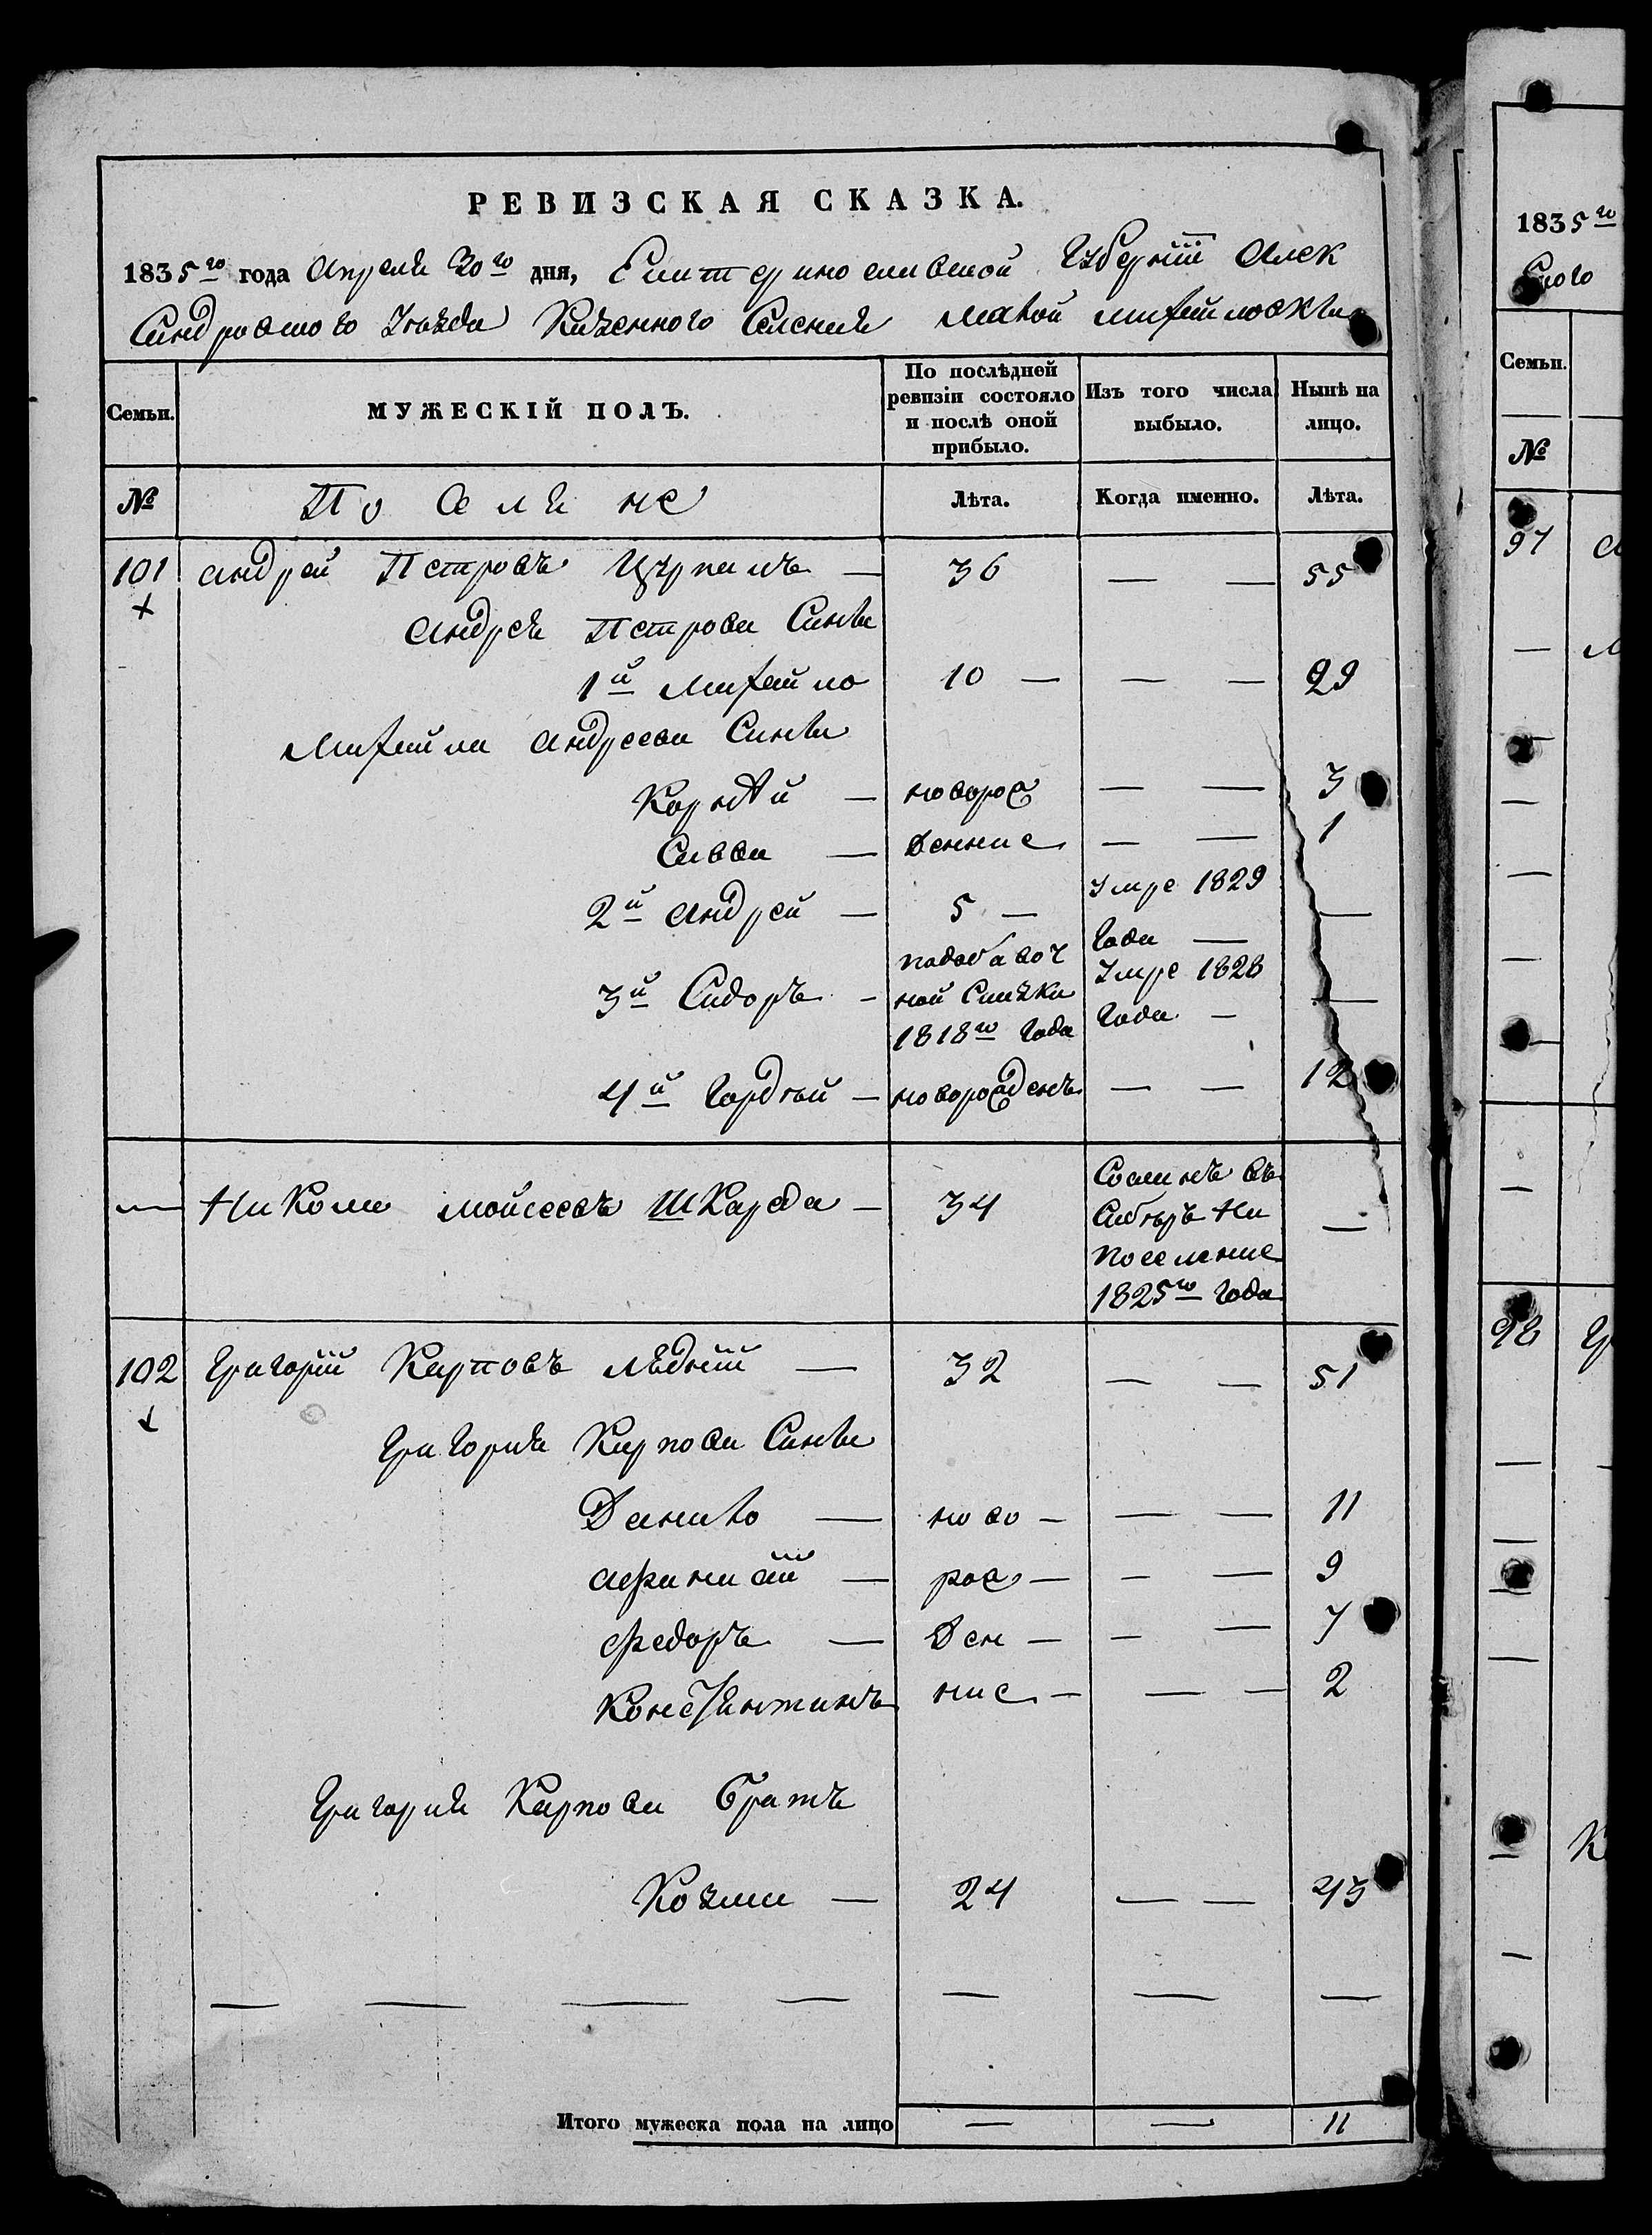 РЕВИЗСКАЯ СКАЗКА.
1835го года Апреля 30го дня, Екатеринославской Губернiи Алек
сандровского Уезда Казенного Селения малой михайловки
Семьи. МУЖЕСКІЙ ПОЛЪ. По послѣдней ревизіи состояло и послѣ оной прибыло. Изъ того числа выбыло. Нынѣ на лицо.
№ Поселяне Лѣта. Когда именно. Лѣта.
101 Андрей Петровъ — 36 — — 55
Андрея Петрова Сынъи
1й Михайло 10 — — — 29
Михайла Андреева Сынъи
Корнѣй — новорож — — 3
Савва — денние — — 1
2й Андрей — 5 — Умре 1829 Года — —
3й Сидоръ — подобавоч ной Сказки 1818го Года Умре 1828 Года — —
4й Гордѣй — новорожденъ — — 12
— Никола мойсеевъ Шкарба — 34 Сосланъ въ Сибѣръ На поселение 1825го Года —
102 Григорiй Карповъ лѣднiй — 32 — — 51
Григория Карпова Сынъи
Данило — ново — — — 11
Афанасiй — рож — — — 9
Федоръ — ден — — — 7
Константинъ ние — — — 2
Григория Карпова Братъ
Козма — 24 — — 43
— — — — — — —
Итого мужеска пола на лицо — — 11
1835го
ского
Семьи.
№
97
98